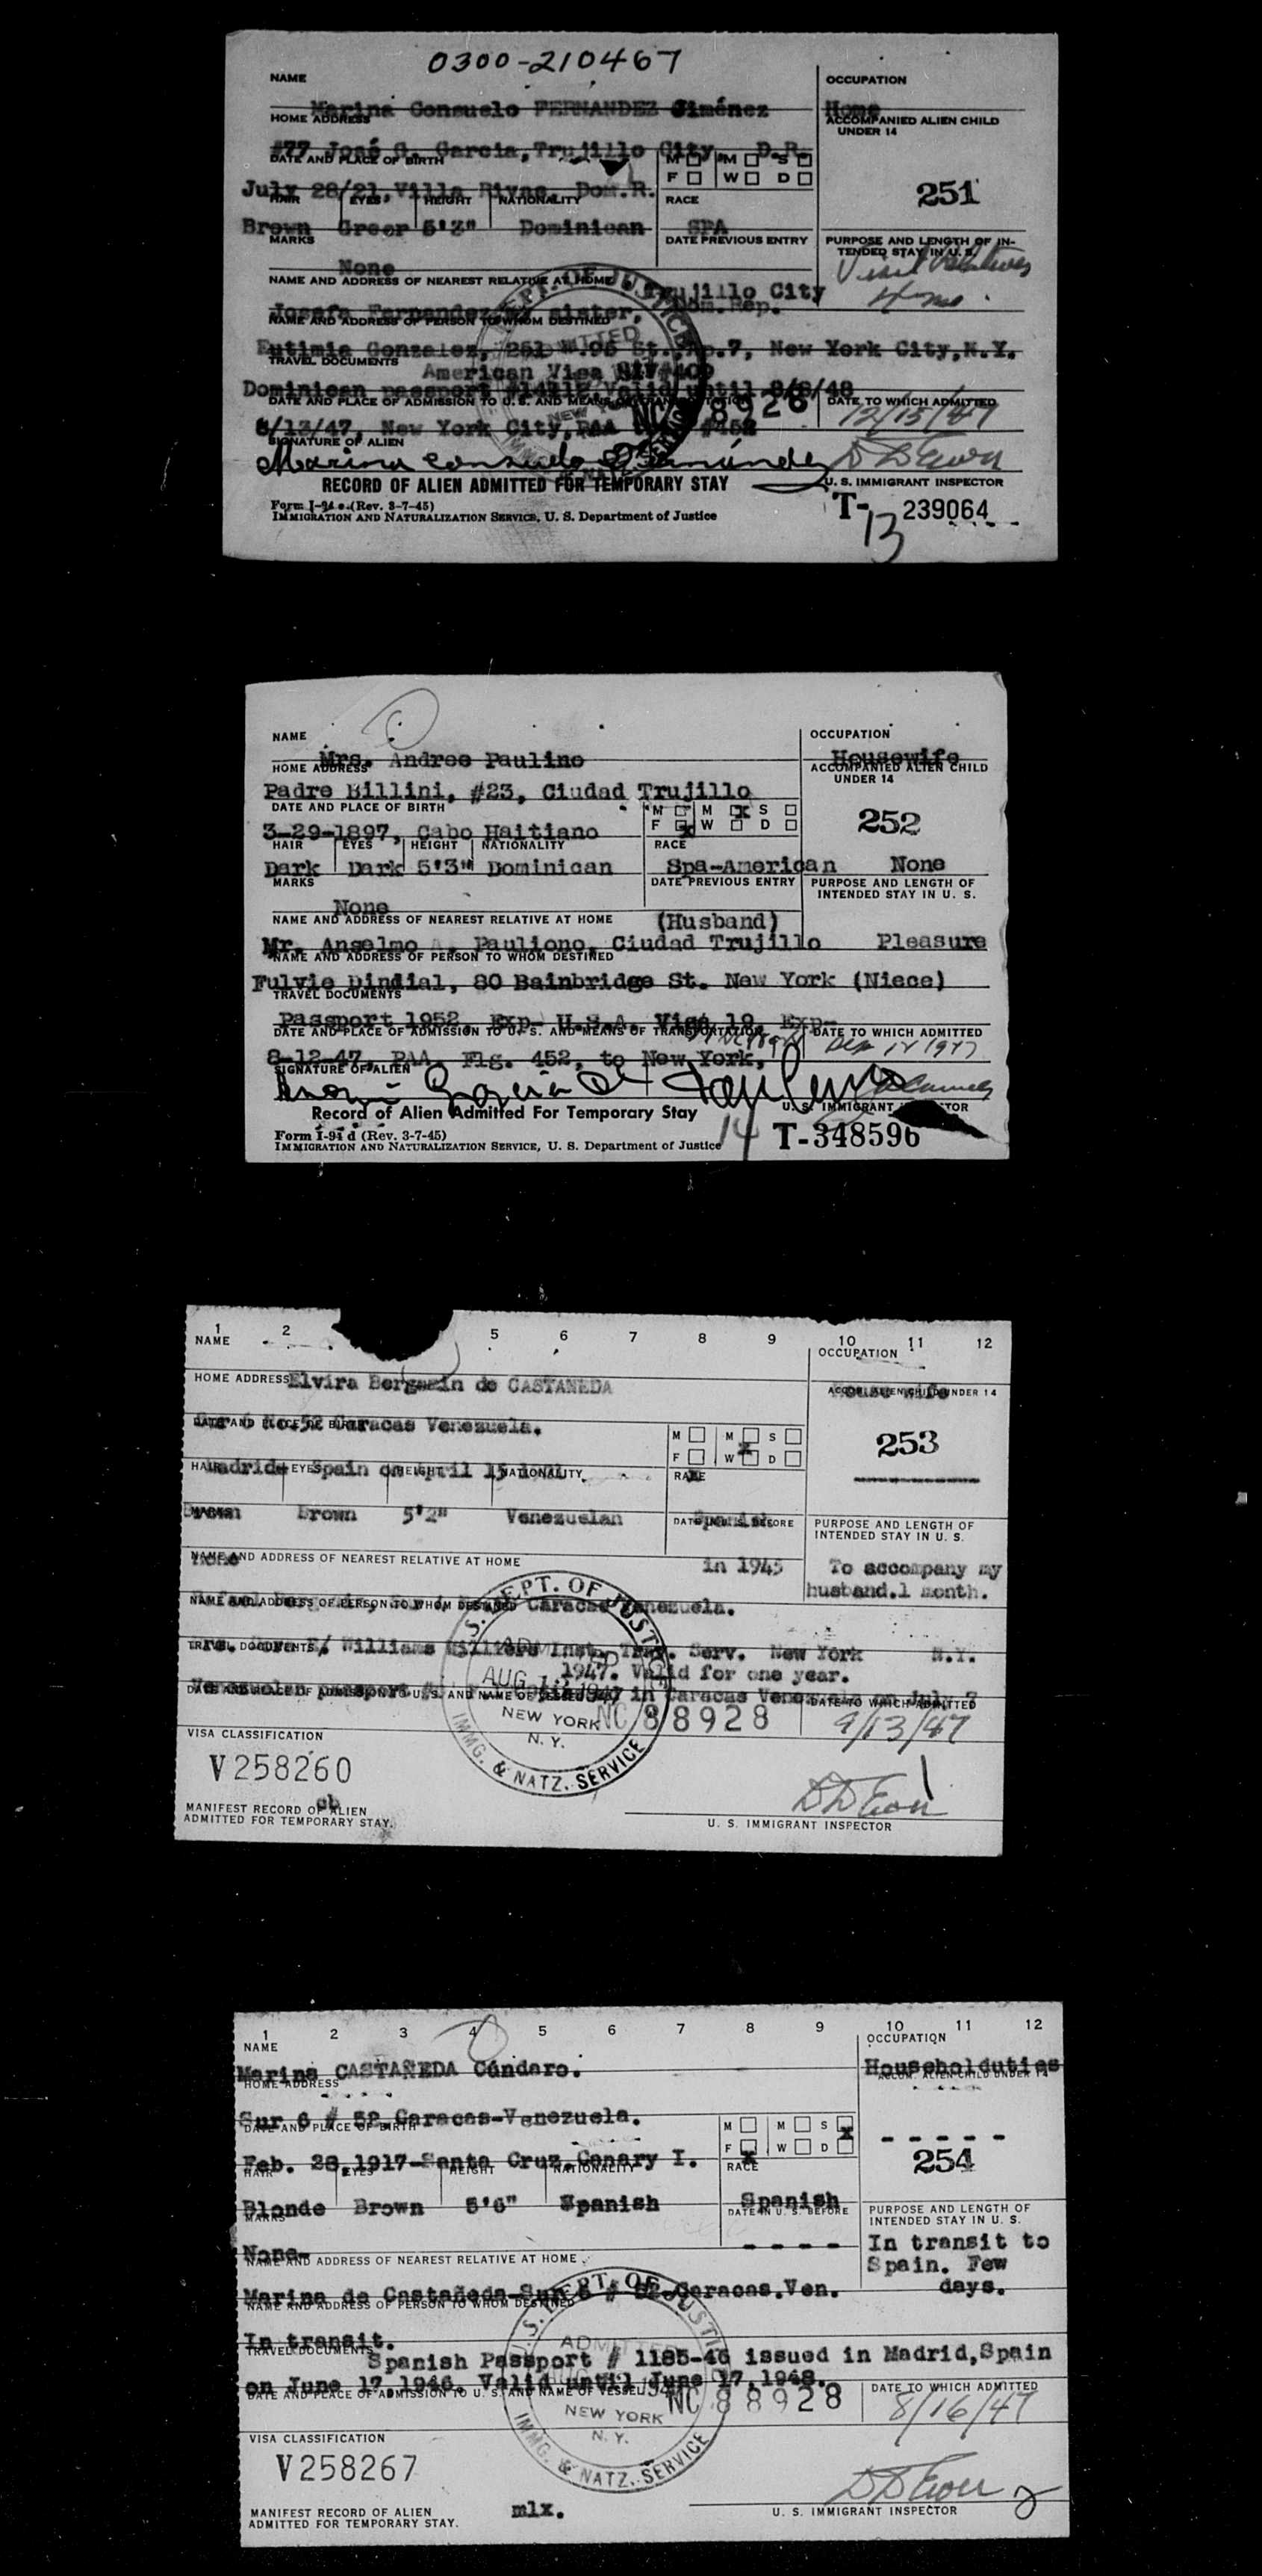 0300-210467
NAME
OCCUPATION
Marina Consuelo FERNANDEZ Jiménez
Home
HOME ADDRESS
ACCOMPANIED ALIEN CHILD
UNDER 14
#77 José G. Garcia, Trujillo City D.R.
DATE AND PLACE OF BIRTH
M M S
F W D
July 28/21, Villa Rivas, Dom.R.
251
HAIR EYES HEIGHT NATIONALITY
RACE
Brown 5'3" Dominican
SPA
MARKS
DATE PREVIOUS ENTRY
PURPOSE AND LENGTH OF IN-
TENDED STAY IN U. S.
None
Visit Relatives
NAME AND ADDRESS OF NEAREST RELATIVE AT HOME
Trujillo City
Dom. Rep.
Josefa Fernandez, sister,
NAME AND ADDRESS OF PERSON TO WHOM DESTINED
Eutimia Gonzalez, 251 W. 95 St. Ap.7, New York City, N.Y.
TRAVEL DOCUMENTS
American Visa
Dominican passport Valid until 8/6/48
DATE AND PLACE OF ADMISSION TO U. S. AND MEANS OF TRANSPORTATION
NC 88926
DATE TO WHICH ADMITTED
12/15/47
8/13/47, New York City, PAA #452
SIGNATURE OF ALIEN
Marina Consuelo Fernández
RECORD OF ALIEN ADMITTED FOR TEMPORARY STAY
U. S. IMMIGRANT INSPECTOR
Form I-94 e (Rev. 3-7-45)
IMMIGRATION AND NATURALIZATION SERVICE, U. S. Department of Justice
T-239064
13
NAME
OCCUPATION
Mrs. Andree Paulino
Housewife
HOME ADDRESS
ACCOMPANIED ALIEN CHILD
UNDER 14
Padre Billini, #23, Ciudad Trujillo
DATE AND PLACE OF BIRTH
M M X S
F X W D
3-29-1897, Cabo Haitiano
252
HAIR EYES HEIGHT NATIONALITY
RACE
Dark Dark 5'3" Dominican
Spa-American
None
MARKS
DATE PREVIOUS ENTRY
PURPOSE AND LENGTH OF
INTENDED STAY IN U. S.
None
NAME AND ADDRESS OF NEAREST RELATIVE AT HOME
(Husband)
Mr. Anselmo A. Pauliono, Ciudad Trujillo
Pleasure
NAME AND ADDRESS OF PERSON TO WHOM DESTINED
Fulvie Dindial, 80 Bainbridge St. New York (Niece)
TRAVEL DOCUMENTS
Passport 1952, Exp- U.S.A. Visa 19, Exp-
DATE AND PLACE OF ADMISSION TO U. S. AND MEANS OF TRANSPORTATION
DATE TO WHICH ADMITTED
8-12-47, PAA, Flg. 452, to New York,
SIGNATURE OF ALIEN
Record of Alien Admitted For Temporary Stay
U. S. IMMIGRANT
Form I-94 d (Rev. 3-7-45)
IMMIGRATION AND NATURALIZATION SERVICE, U. S. Department of Justice
14
T-348596
1 2 5 6 7 8 9 10 11 12
NAME
OCCUPATION
HOME ADDRESS
Elvira Bergamin de CASTAÑEDA
ACCOM. ALIEN CHILD UNDER 14
House wife
Sur 6 No.52 Caracas Venezuela.
DATE AND PLACE OF BIRTH
M M S
F W D
253
Madrid Spain on April 15
HAIR EYES HEIGHT NATIONALITY
RACE
Brown Brown 5'2" Venezuelan
Spanish
MARKS
DATE IN U. S. BEFORE
PURPOSE AND LENGTH OF
INTENDED STAY IN U. S.
none
NAME AND ADDRESS OF NEAREST RELATIVE AT HOME
in 1945
To accompany my
husband. 1 month.
Caracas Venezuela.
NAME AND ADDRESS OF PERSON TO WHOM DESTINED
Williams Williers Inst. Trav. Serv. New York N.Y.
TRAVEL DOCUMENTS
1947. Valid for one year.
Venezuelan passport in Caracas Venezuela on July 7
DATE TO WHICH ADMITTED
NC 88928
9/13/47
U.S. DEPT. OF JUSTICE
ADMITTED
AUG 13 1947
NEW YORK
N. Y.
IMMG. & NATZ. SERVICE
VISA CLASSIFICATION
V258260
cb
MANIFEST RECORD OF ALIEN
ADMITTED FOR TEMPORARY STAY.
U. S. IMMIGRANT INSPECTOR
1 2 3 4 5 6 7 8 9 10 11 12
NAME
OCCUPATION
Marina CASTAÑEDA Cúndaro.
Householduties
HOME ADDRESS
ACCOM. ALIEN CHILD UNDER 14
Sur 6 # 52 Caracas-Venezuela.
DATE AND PLACE OF BIRTH
M M S X
F X W D
- - - - -
254
Feb. 28,1917-Santa Cruz, Canary I.
HAIR EYES HEIGHT NATIONALITY
RACE
Blonde Brown 5'6" Spanish
Spanish
MARKS
DATE IN U. S. BEFORE
PURPOSE AND LENGTH OF
INTENDED STAY IN U. S.
None-
- - - -
In transit to
Spain. Few
days.
NAME AND ADDRESS OF NEAREST RELATIVE AT HOME
Marina de Castañeda-Sur 6 # 52-Caracas.Ven.
NAME AND ADDRESS OF PERSON TO WHOM DESTINED
In transit.
TRAVEL DOCUMENTS
Spanish Passport # 1185-46 issued in Madrid,Spain
on June 17,1946. Valid until June 17,1948.
DATE AND PLACE OF ADMISSION TO U. S. AND NAME OF VESSEL
NC 88928
DATE TO WHICH ADMITTED
8/16/47
U.S. DEPT. OF JUSTICE
ADMITTED
NEW YORK
N. Y.
IMMG. & NATZ. SERVICE
VISA CLASSIFICATION
V258267
MANIFEST RECORD OF ALIEN
ADMITTED FOR TEMPORARY STAY.
mlx.
U. S. IMMIGRANT INSPECTOR
2